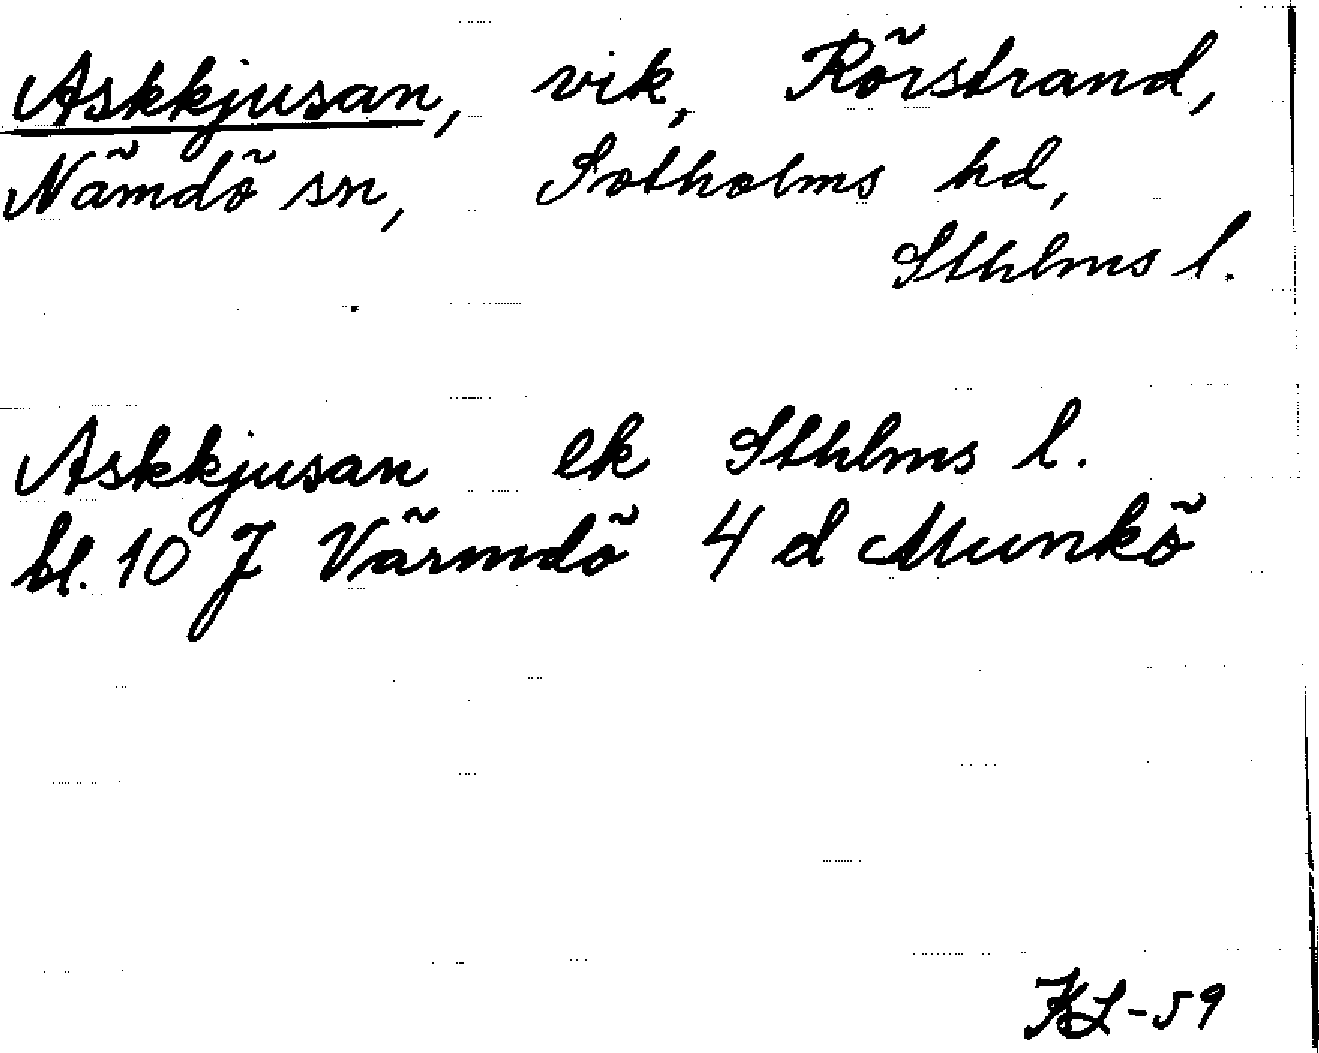 Askkjusan, vik, Rörstrand,
Nämdö sn, Sotholms hd,
Sthlms l.
Askkjusan ek Sthlms l.
bl. 10 J Värmdö 4 d Munkö
KL-59